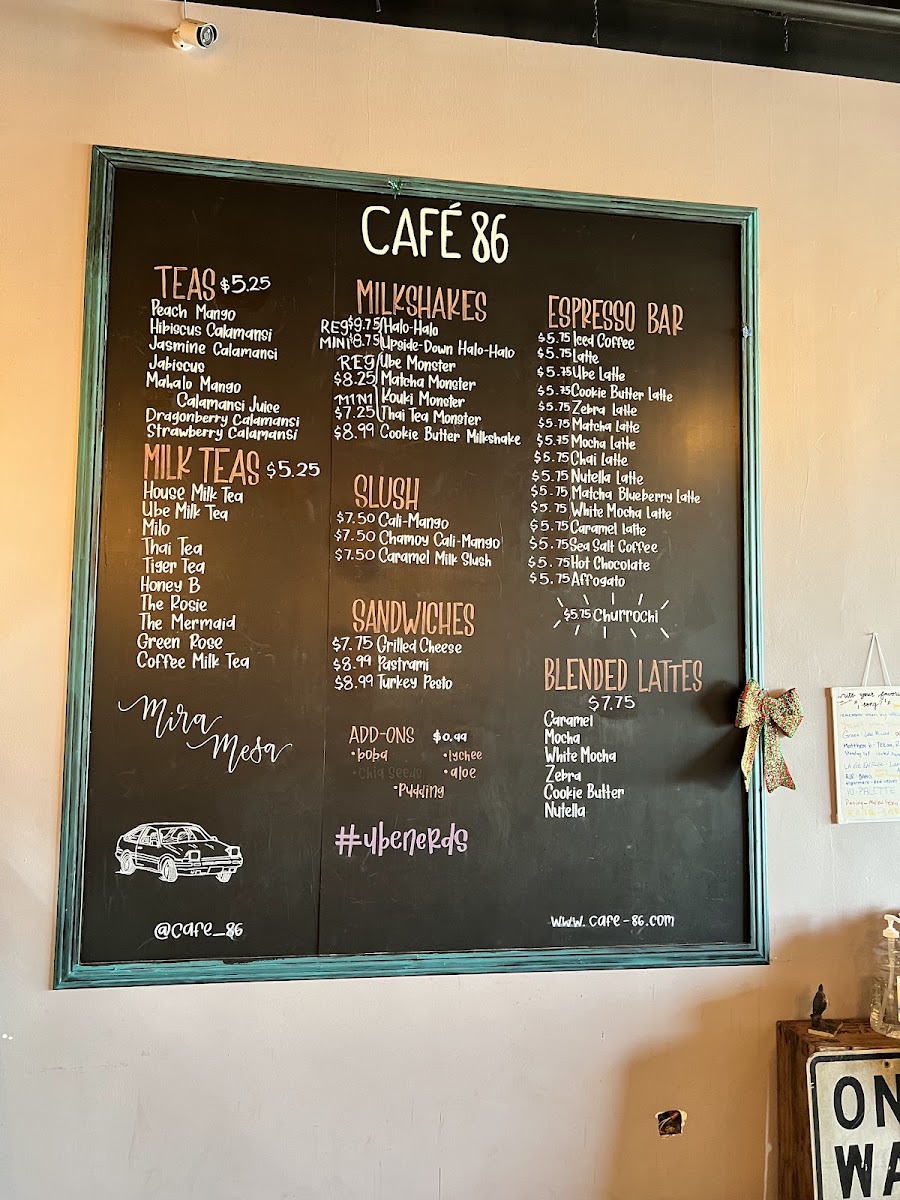 CAFÉ 86
TEAS $5.25
Peach Mango
Hibiscus Calamansi
Jasmine Calamansi
Jabiscus
Mahalo Mango
Calamansi Juice
Dragonberry Calamansi
Strawberry Calamansi
MILK TEAS $5.25
House Milk Tea
Ube Milk Tea
Milo
Thai Tea
Tiger Tea
Honey B
The Rosie
The Mermaid
Green Rose
Coffee Milk Tea
Mira
Mesa
@cafe_86
MILKSHAKES
REG $9.75 Halo-Halo
MINI $8.75 Upside-Down Halo-Halo
REG Ube Monster
$8.25 Matcha Monster
MINI Kouki Monster
$7.25 Thai Tea Monster
$8.99 Cookie Butter Milkshake
SLUSH
$7.50 Cali-Mango
$7.50 Chamoy Cali-Mango
$7.50 Caramel Milk Slush
SANDWICHES
$7.75 Grilled Cheese
$8.99 Pastrami
$8.99 Turkey Pesto
ADD-ONS $0.99
•boba •lychee
•Chia Seeds •aloe
•Pudding
#ubenerds
ESPRESSO BAR
$5.75 Iced Coffee
$5.75 Latte
$5.75 Ube Latte
$5.75 Cookie Butter Latte
$5.75 Zebra Latte
$5.75 Matcha Latte
$5.75 Mocha Latte
$5.75 Chai Latte
$5.75 Nutella Latte
$5.75 Matcha Blueberry Latte
$5.75 White Mocha Latte
$5.75 Caramel latte
$5.75 Sea Salt Coffee
$5.75 Hot Chocolate
$5.75 Affogato
$5.75 Churrochi
BLENDED LATTES
$7.75
Caramel
Mocha
White Mocha
Zebra
Cookie Butter
Nutella
www.cafe-86.com
write your favorite
song
ON
WA